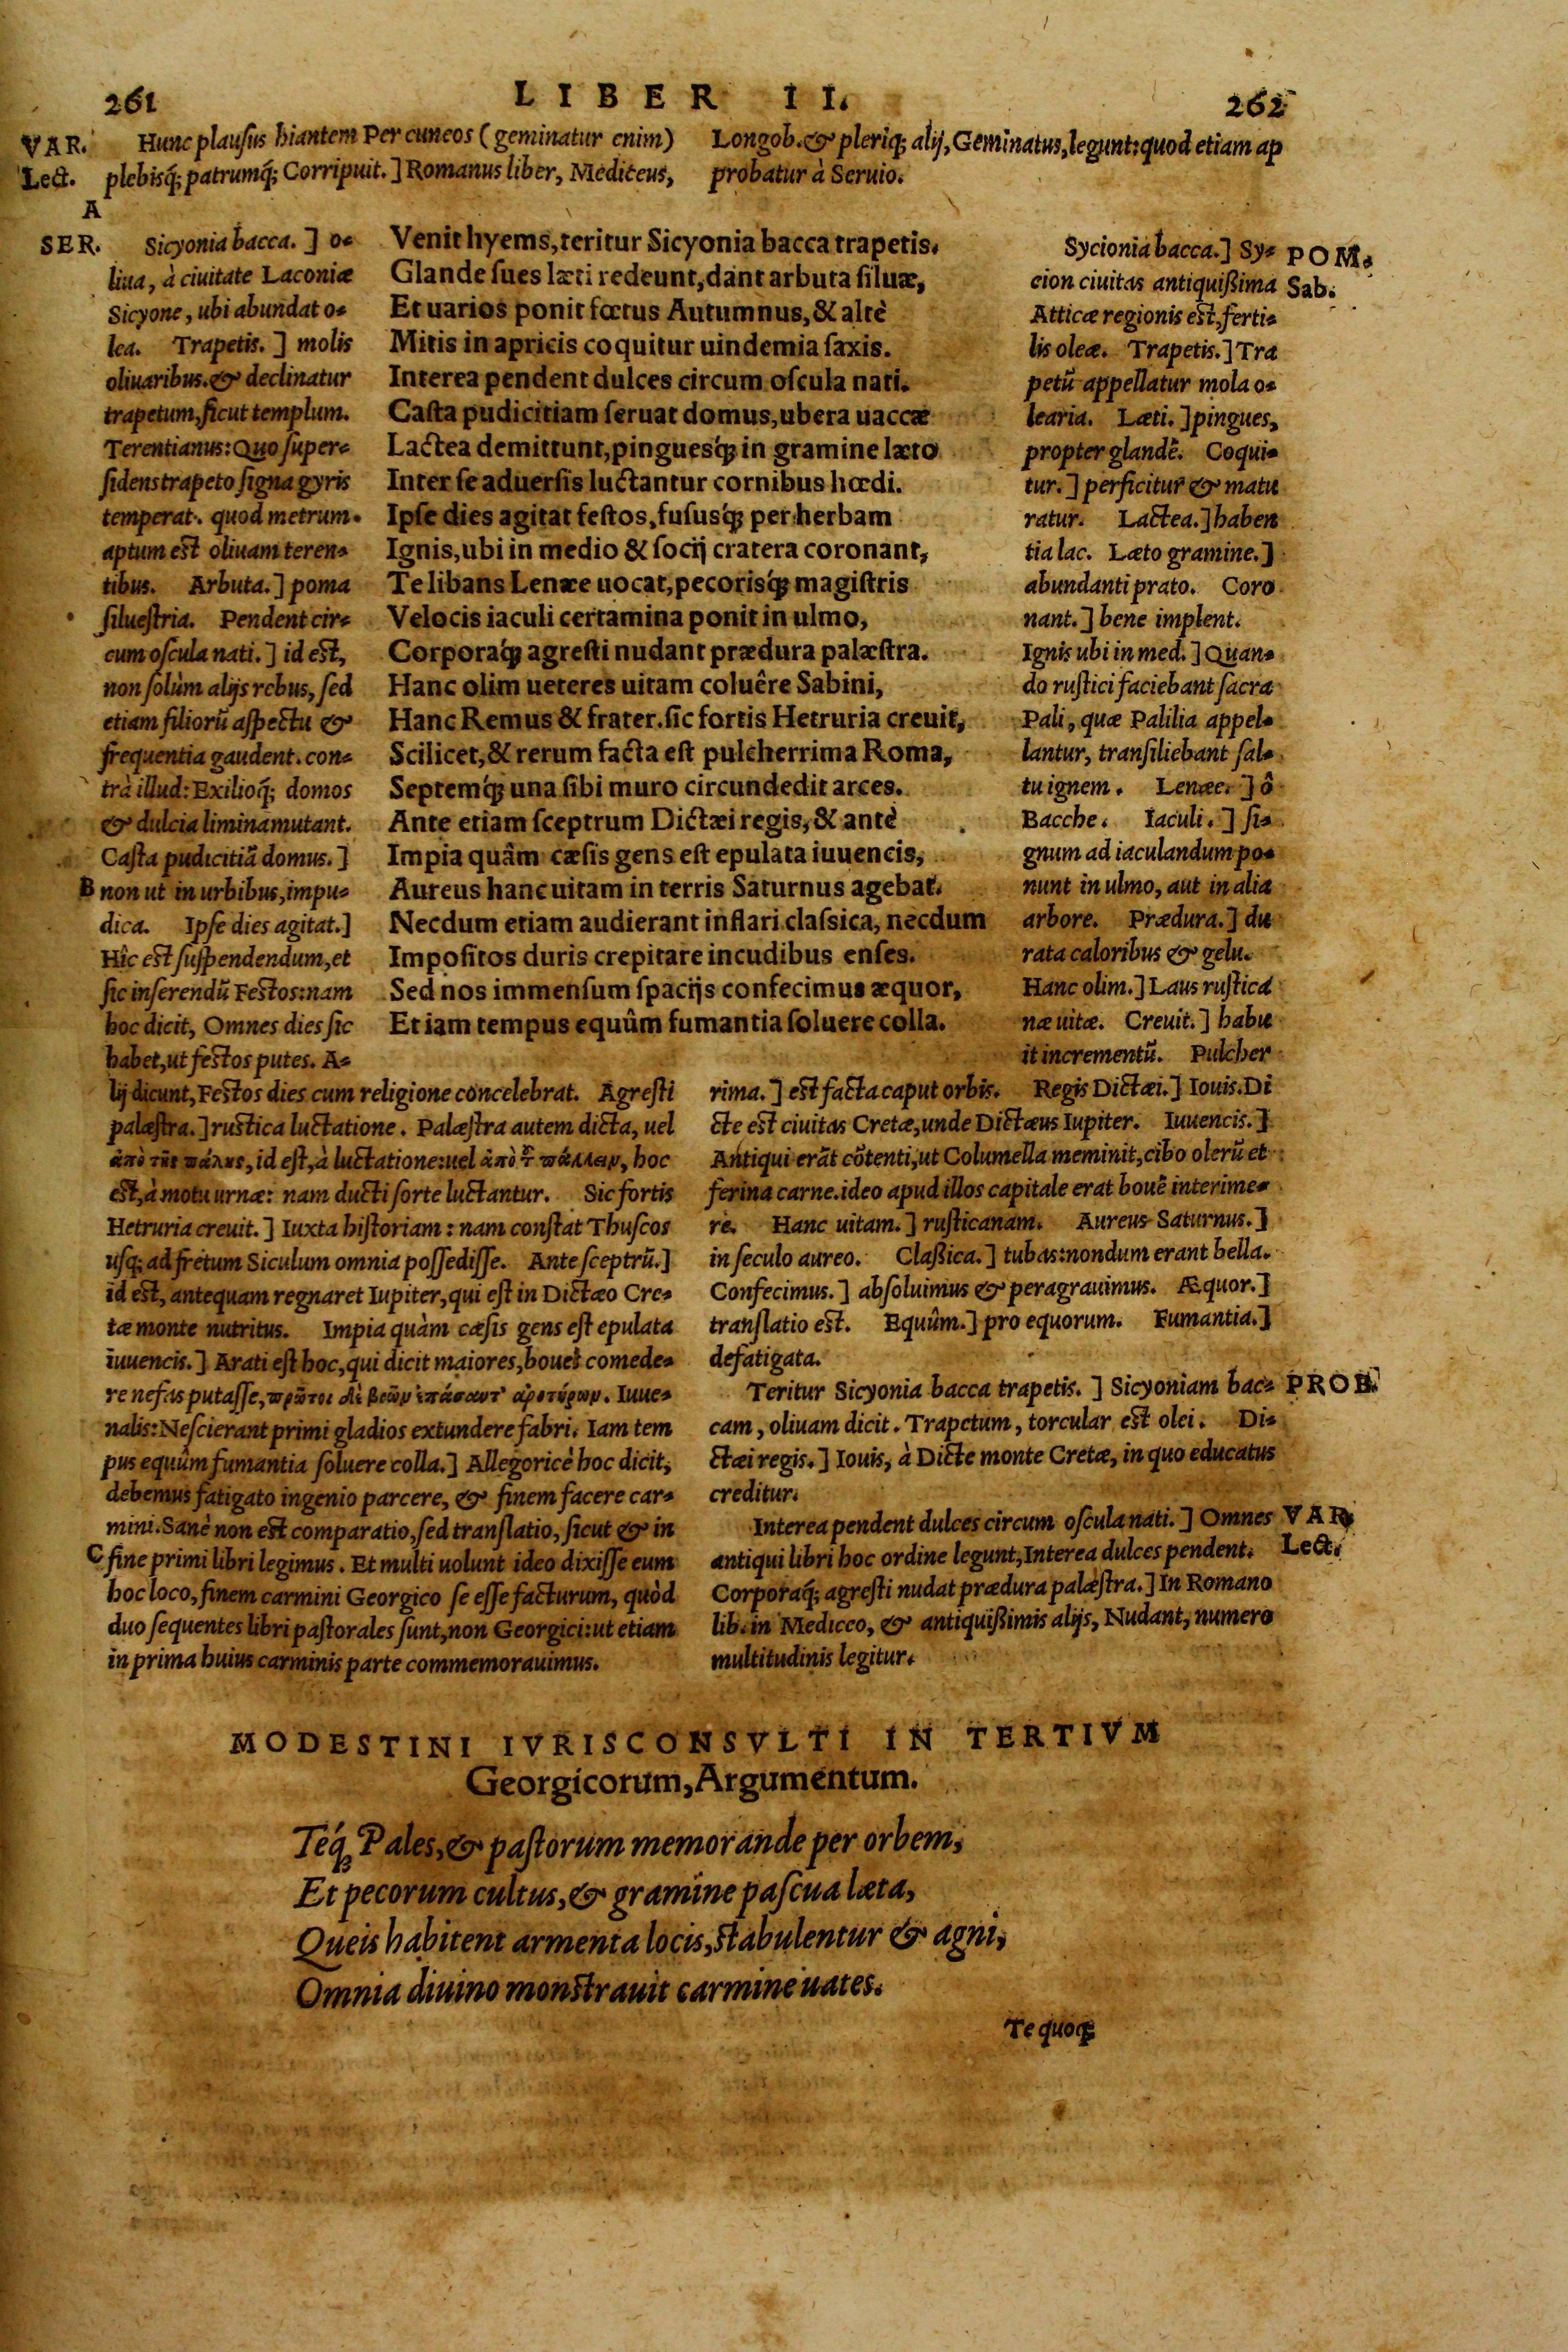 261 LIBER II. 262
VAR. Hunc plauſus hiantem Per cuneos (geminatur enim)
Lect. plebisq́; patrumq́; Corripuit.] Romanus liber, Mediceus,
Longob. & pleriq; alij, Geminatus, legunt: quod etiam ap
probatur à Seruio.
A
SER. Sicyonia bacca.] o-
liua, à ciuitate Laconiæ
Sicyone, ubi abundat o-
lea. Trapetis.] molis
oliuaribus. & declinatur
trapetum, ſicut templum.
Terentianus: Quo ſuper-
ſidens trapeto ſigna gyris
temperat. quod metrum
aptum est oliuam teren-
tibus. Arbuta.] poma
ſilueſtria. Pendent cir-
cum oſcula nati.] id est,
non ſolùm alijs rebus, ſed
etiam filiorũ aſpectu &
frequentia gaudent. con-
trà illud: Exilioq́; domos
& dulcia limina mutant.
Caſta pudicitiã domus.]
B non ut in urbibus, impu-
dica. Ipſe dies agitat.]
Hîc est ſuſpendendum, et
ſic inſerendũ Festos: nam
hoc dicit, Omnes dies ſic
habet, ut festos putes. A-
Venit hyems, teritur Sicyonia bacca trapetis.
Glande ſues læti redeunt, dant arbuta ſiluæ,
Et uarios ponit fœtus Autumnus, & altè
Mitis in apricis coquitur uindemia ſaxis.
Interea pendent dulces circum oſcula nati.
Caſta pudicitiam ſeruat domus, ubera uaccæ
Lactea demittunt, pinguesq́; in gramine læto
Inter ſe aduerſis luctantur cornibus hœdi.
Ipſe dies agitat feſtos, fuſusq́; per herbam
Ignis, ubi in medio & ſocij cratera coronant,
Te libans Lenæe uocat, pecorisq́; magiſtris
Velocis iaculi certamina ponit in ulmo,
Corporaq́; agreſti nudant prædura palæſtra.
Hanc olim ueteres uitam coluêre Sabini,
Hanc Remus & frater. ſic fortis Hetruria creuit,
Scilicet, & rerum facta eſt pulcherrima Roma,
Septemq́; una ſibi muro circundedit arces.
Ante etiam ſceptrum Dictæi regis, & antè
Impia quâm cæſis gens eſt epulata iuuencis,
Aureus hanc uitam in terris Saturnus agebat.
Necdum etiam audierant inflari claſsica, necdum
Impoſitos duris crepitare incudibus enſes.
Sed nos immenſum ſpacijs confecimus æquor,
Et iam tempus equûm fumantia ſoluere colla.
Sycionia bacca.] Sy- POM.
cion ciuitas antiquißima Sab.
Atticæ regionis est, ferti-
lis oleæ. Trapetis.] Tra
petũ appellatur mola o-
learia. Læti.] pingues,
propter glandẽ. Coqui-
tur.] perficitur & matu
ratur. Lactea.] haben
tia lac. Læto gramine.]
abundanti prato. Coro
nant.] bene implent.
Ignis ubi in med.] Quan-
do ruſtici faciebant ſacra
Pali, quæ Palilia appel-
lantur, tranſiliebant ſal-
tu ignem. Lenæe.] ô
Bacche. Iaculi.] ſi-
gnum ad iaculandum po-
nunt in ulmo, aut in alia
arbore. Prædura.] du
rata caloribus & gelu.
Hanc olim.] Laus ruſtica
næ uitæ. Creuit.] habu
it incrementũ. Pulcher
lij dicunt, Festos dies cum religione concelebrat. Agreſti
palæſtra.] rustica luctatione. Palæſtra autem dicta, uel
ἀπὸ τῆς πάλης, id eſt, à luctatione: uel ἀπὸ τ πάλλειν, hoc
est, à motu urnæ: nam ducti ſorte luctantur. Sic fortis
Hetruria creuit.] Iuxta hiſtoriam: nam conſtat Thuſcos
uſq; ad fretum Siculum omnia poſſediſſe. Ante ſceptrũ.]
id est, antequam regnaret Iupiter, qui eſt in Dictæo Cre-
tæ monte nutritus. Impia quàm cæſis gens eſt epulata
iuuencis.] Arati eſt hoc, qui dicit maiores, boues comede-
re nefas putaſſe, πρῶτοι δὲ βοῶν ἐπάσαντ' ἀροτήρων. Iuue-
nalis: Neſcierant primi gladios extundere fabri. Iam tem
pus equûm fumantia ſoluere colla.] Allegoricè hoc dicit,
debemus fatigato ingenio parcere, & finem facere car-
mini. Sanè non est comparatio, ſed tranſlatio, ſicut & in
C fine primi libri legimus. Et multi uolunt ideo dixiſſe eum
hoc loco, finem carmini Georgico ſe eſſe facturum, quòd
duo ſequentes libri paſtorales ſunt, non Georgici: ut etiam
in prima huius carminis parte commemorauimus.
rima.] est facta caput orbis. Regis Dictæi.] Iouis. Di
cte est ciuitas Cretæ, unde Dictæus Iupiter. Iuuencis.]
Antiqui erãt cõtenti, ut Columella meminit, cibo olerũ et
ferina carne. ideo apud illos capitale erat bouẽ interime-
re. Hanc uitam.] ruſticanam. Aureus Saturnus.]
in ſeculo aureo. Claßica.] tubas: nondum erant bella.
Confecimus.] abſoluimus & peragrauimus. Æquor.]
tranſlatio est. Equûm.] pro equorum. Fumantia.]
defatigata.
Teritur Sicyonia bacca trapetis.] Sicyoniam bac- PROB.
cam, oliuam dicit. Trapetum, torcular est olei. Di-
ctæi regis.] Iouis, à Dicte monte Cretæ, in quo educatus
creditur.
Interea pendent dulces circum oſcula nati.] Omnes VAR.
antiqui libri hoc ordine legunt, Interea dulces pendent. Lect.
Corporaq́; agreſti nudat prædura palæſtra.] In Romano
lib. in Mediceo, & antiquißimis alijs, Nudant, numero
multitudinis legitur.
MODESTINI IVRISCONSVLTI IN TERTIVM
Georgicorum, Argumentum.
Teq́; Pales, & paſtorum memorande per orbem,
Et pecorum cultus, & gramine paſcua læta,
Queis habitent armenta locis, stabulentur & agni,
Omnia diuino monstrauit carmine uates.
Te quoq;